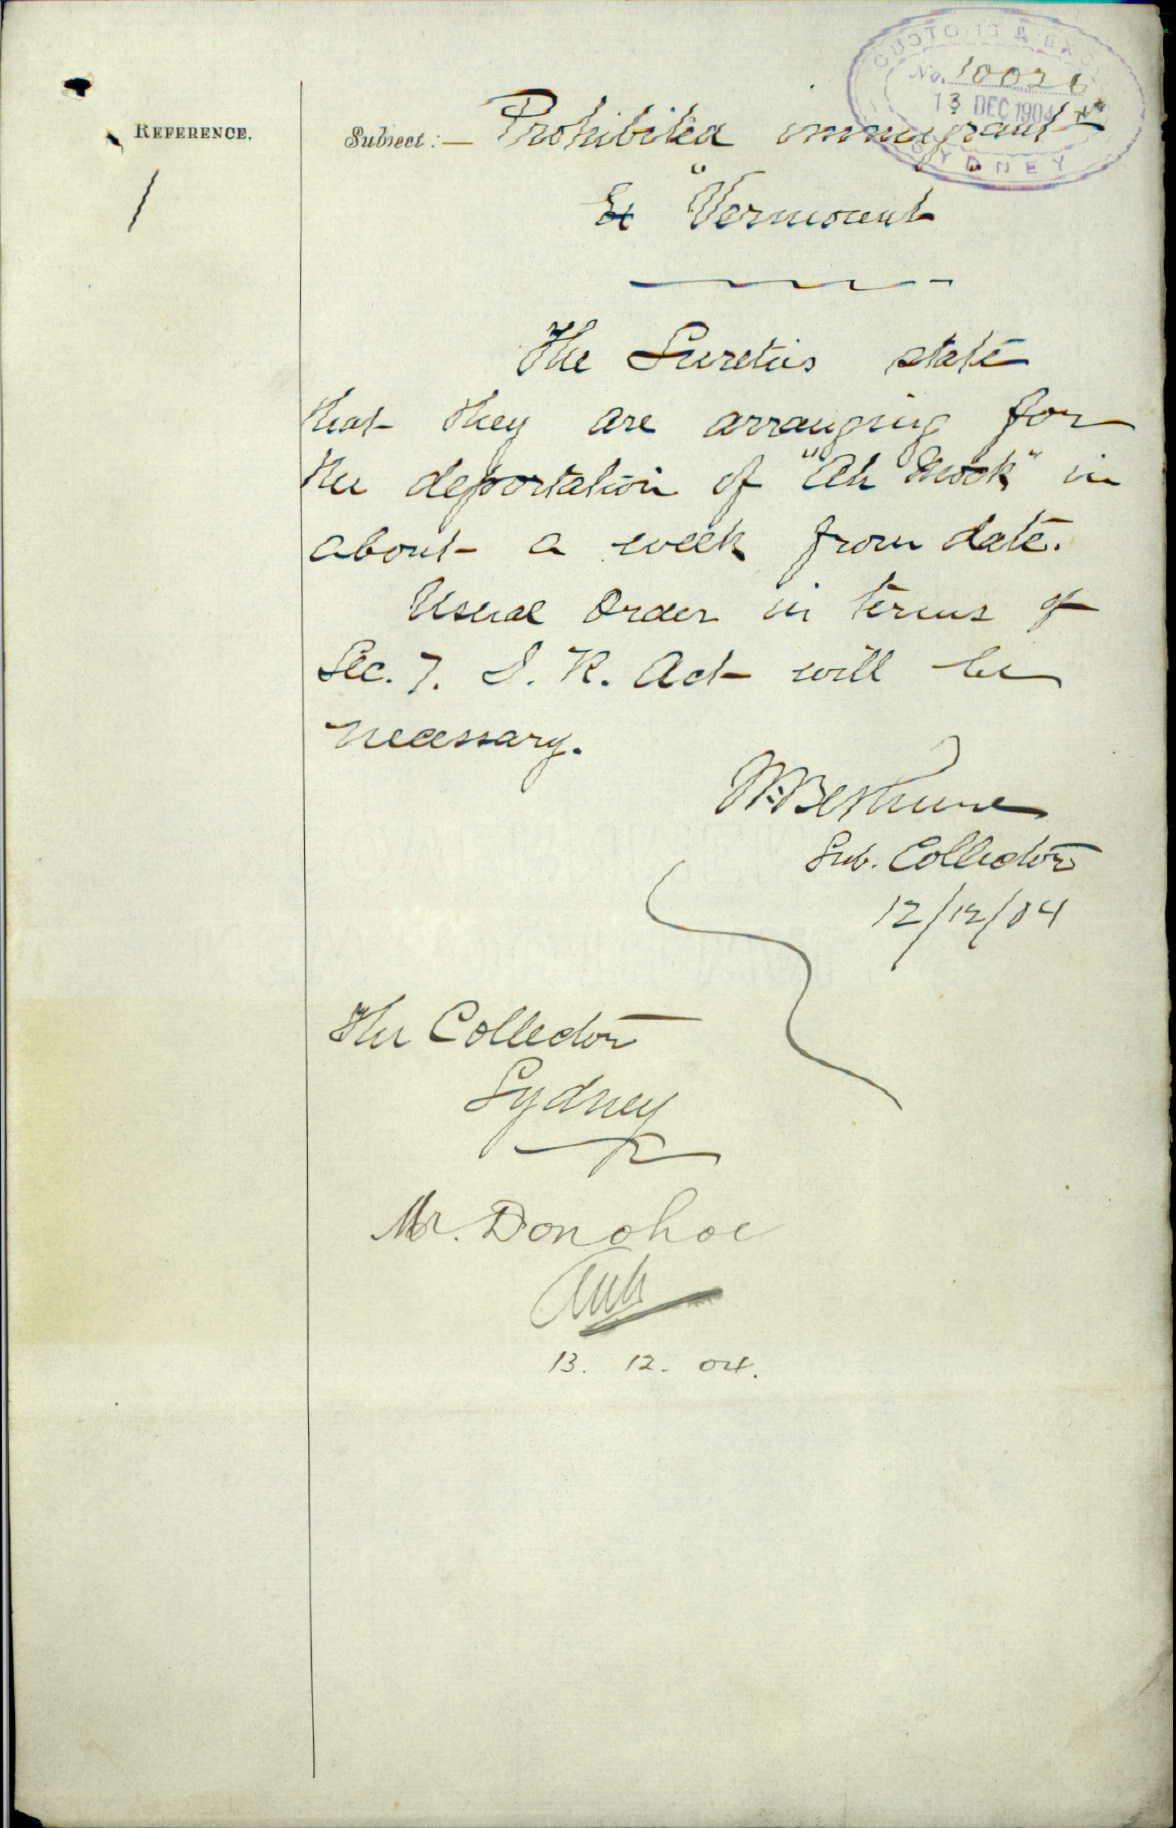 No. 10026
13 DEC 1904
SYDNEY
REFERENCE.
Subject:— Prohibited immigrant
Ex "Vermount
The Sureties state
that they are arranging for
the deportation of "Ah Mook" in
about a week from date.
Usual Order in terms of
Sec. 7. I. R. Act will be
necessary.
W. Bethune
Sub. Collector
12/12/04
The Collector
Sydney
Mr. Donohoe
13. 12. 04.